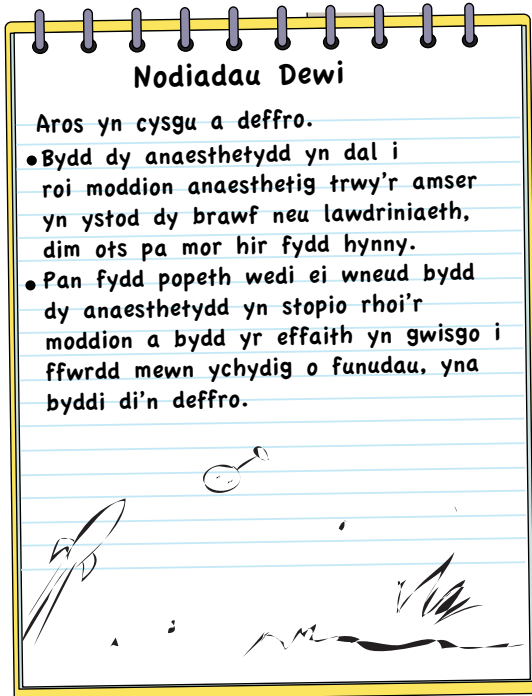 Nodiadau Dewi
Aros yn cysgu a deffro.
•Bydd dy anaesthetydd yn dal i
roi moddion anaesthetig trwy'r amser
yn ystod dy brawf neu lawdriniaeth,
dim ots pa mor hir fydd hynny.
•Pan fydd popeth wedi ei wneud bydd
dy anaesthetydd yn stopio rhoi'r
moddion a bydd yr effaith yn gwisgo i
ffwrdd mewn ychydig o funudau, yna
byddi di'n deffro.